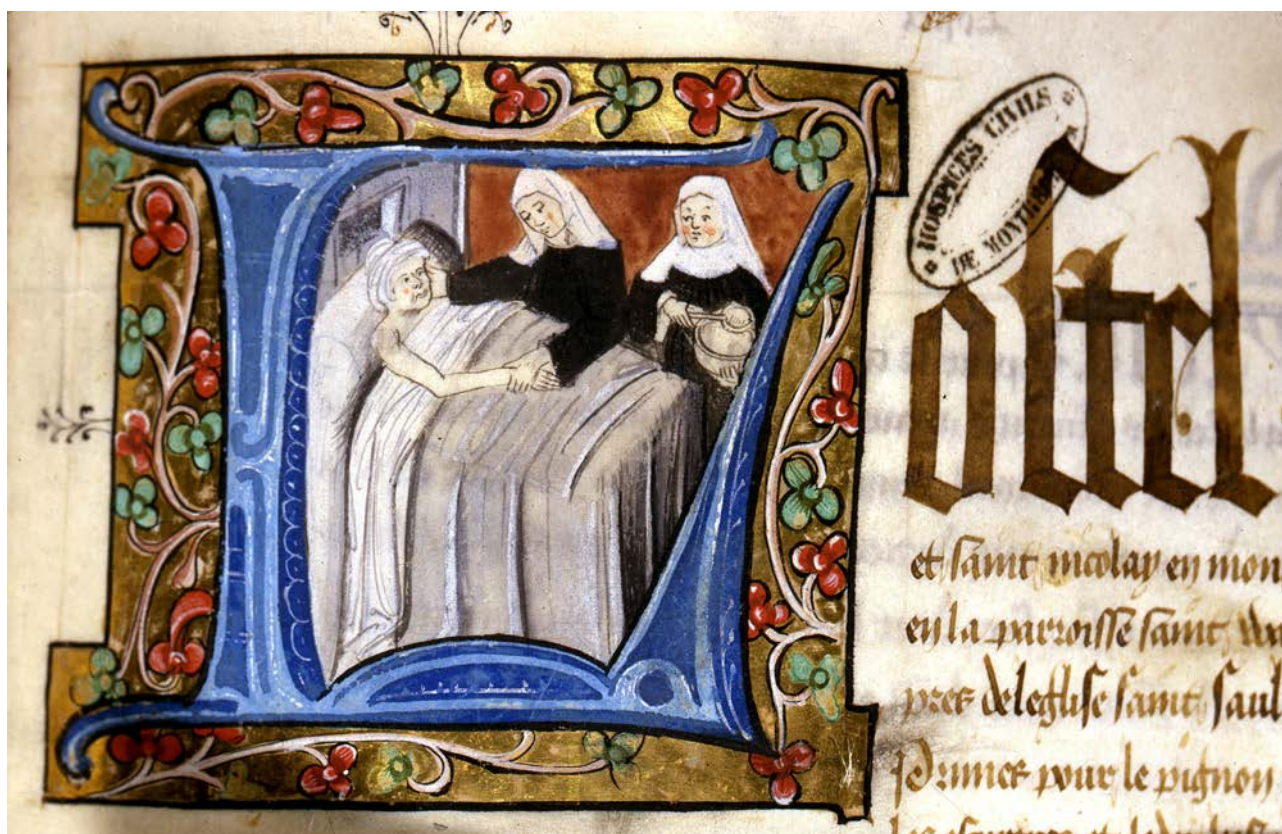 HOSPICES CIVILS
DE
Lostel
et saint nicolay en mon
en la parroisse saint
pres de leglise saint saul
pour le pignon